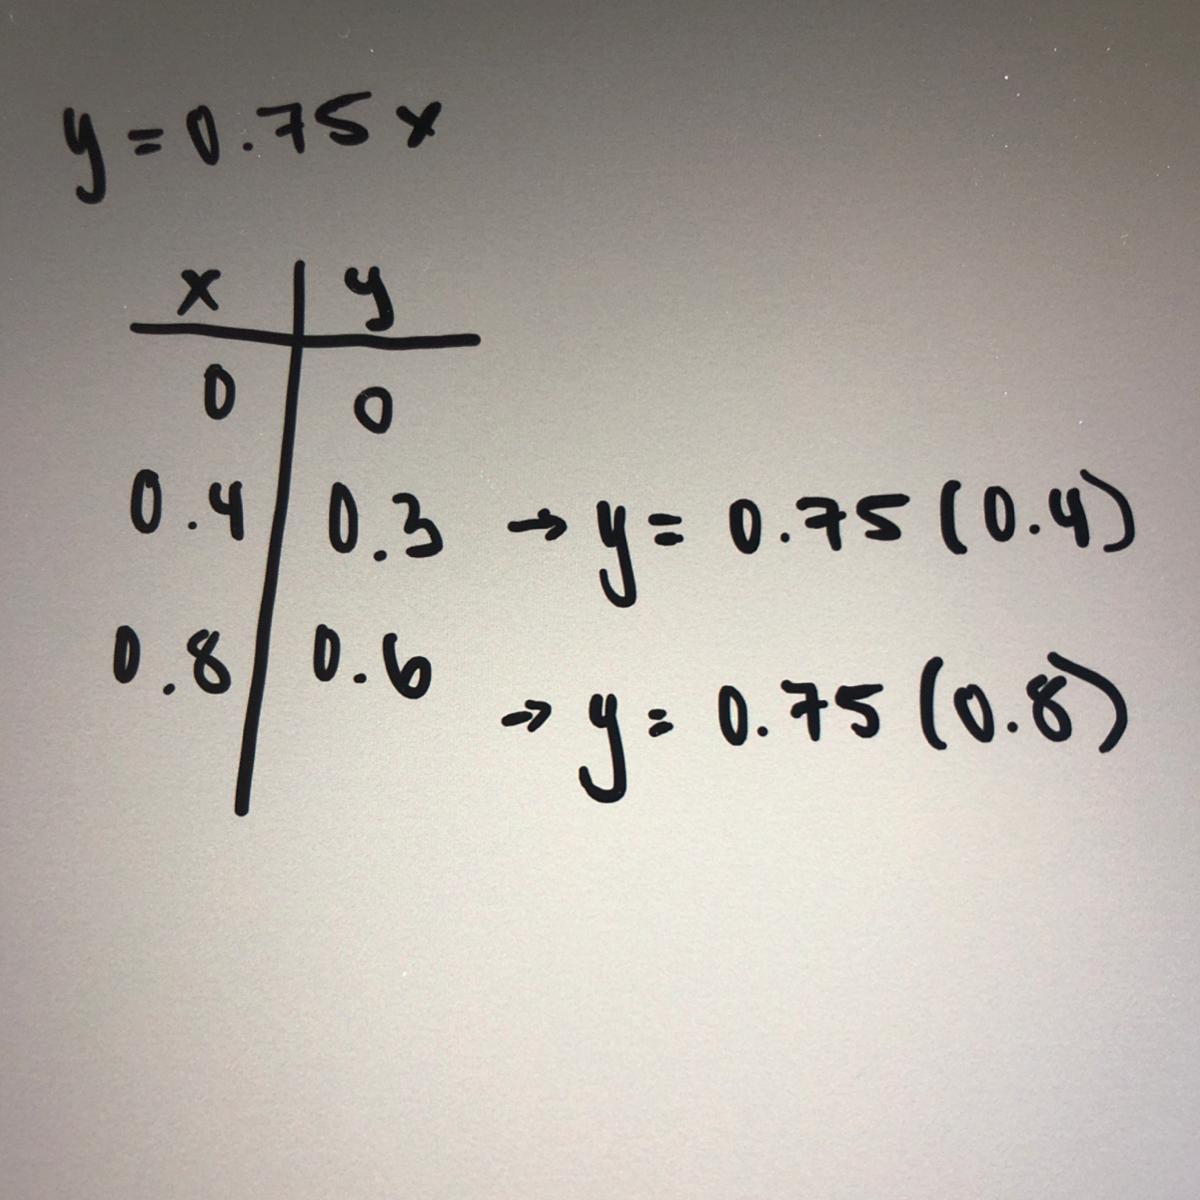 y = 0.75x
x y
0 0
0.4 0.3 → y = 0.75 (0.4)
0.8 0.6 → y = 0.75 (0.8)